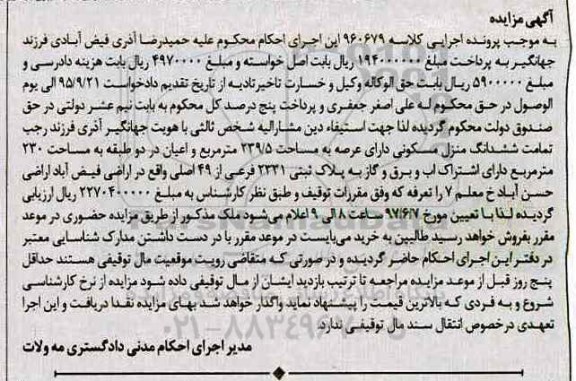 آگهی مزایده
به موجب پرونده اجرایی کلاسه ۹۶۰۶۷۹ این اجرای احکام محکوم علیه حمیدرضا آذری فیض آبادی فرزند
جهانگیر به پرداخت مبلغ ۱۹۴۰۰۰۰۰۰ ریال بابت اصل خواسته و مبلغ ۴۹۷۰۰۰۰ ریال بابت هزینه دادرسی و
مبلغ ۵۹۰۰۰۰۰ ریال بابت حق الوکاله وکیل و خسارت تاخیر تادیه از تاریخ تقدیم دادخواست ۹۵/۹/۲۱ الی یوم
الوصول در حق محکوم له علی اصغر جعفری و پرداخت پنج درصد کل محکوم به بابت نیم عشر دولتی در حق
صندوق دولت محکوم گردیده لذا جهت استیفاء دین مشارالیه شخص ثالثی با هویت جهانگیر آذری فرزند رجب
تمامت ششدانگ منزل مسکونی دارای عرصه به مساحت ۲۳۹/۵ مترمربع و اعیان در دو طبقه به مساحت ۲۳۰
مترمربع دارای اشتراک اب و برق و گاز به پلاک ثبتی ۲۳۳۱ فرعی از ۴۹ اصلی واقع در اراضی فیض آباد اراضی
حسن آباد خ معلم ۷ را تعرفه که وفق مقررات توقیف و طبق نظر کارشناس به مبلغ ۲۲۷۰۴۰۰۰۰۰ ریال ارزیابی
گردیده لذا با تعیین مورخ ۹۷/۶/۷ ساعت ۸ الی ۹ اعلام می شود ملک مذکور از طریق مزایده حضوری در موعد
مقرر بفروش خواهد رسید طالبین به خرید می بایست در موعد مقرر با در دست داشتن مدارک شناسایی معتبر
در دفتر این اجرای احکام حاضر گردیده و در صورتی که متقاضی رویت موقعیت مال توقیفی هستند حداقل
پنج روز قبل از موعد مزایده مراجعه تا ترتیب بازدید ایشان از مال توقیفی داده شود مزایده از نرخ کارشناسی
شروع و به فردی که بالاترین قیمت را پیشنهاد نماید واگذار خواهد شد بهای مزایده نقدا دریافت و این اجرا
تعهدی در خصوص انتقال سند مال توقیفی ندارد.
مدیر اجرای احکام مدنی دادگستری مه ولات